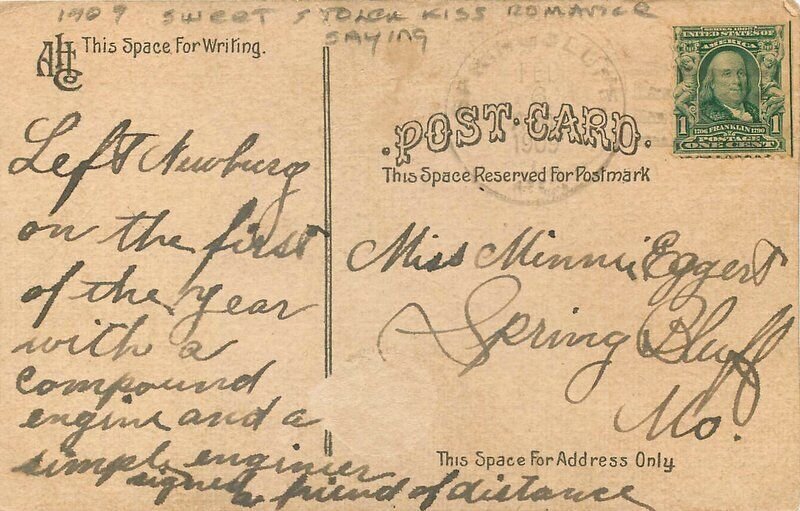 1909 SWEET STOLEN KISS ROMANCE
SAYING
AHCo
This Space For Writing.
POST CARD.
This Space Reserved For Postmark
FEB
SERIES 1902
UNITED STATES OF
AMERICA
1706 FRANKLIN 1790
1 POSTAGE 1
ONE CENT
Left Newburg
on the first
of the year
with a
compound
engine and a
simple enginier
signed a friend of distance
Miss Minnie Eggert
Spring Bluff
Mo.
This Space For Address Only